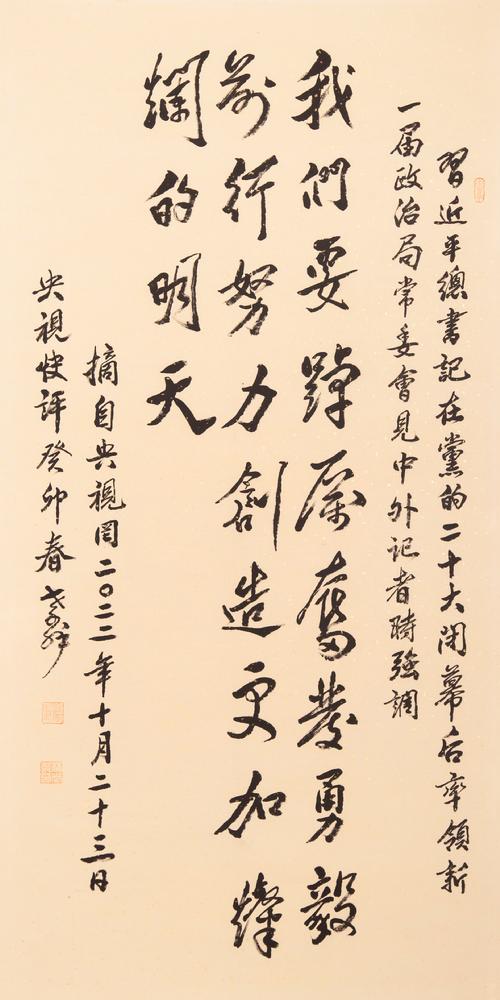 習近平總書記在黨的二十大闭幕后率領新
一届政治局常委會見中外记者時強調
我們要踔厲奮發勇毅
前行努力創造更加燦
爛的明天
摘自央視网二〇二二年十月二十三日
央視快評癸卯春